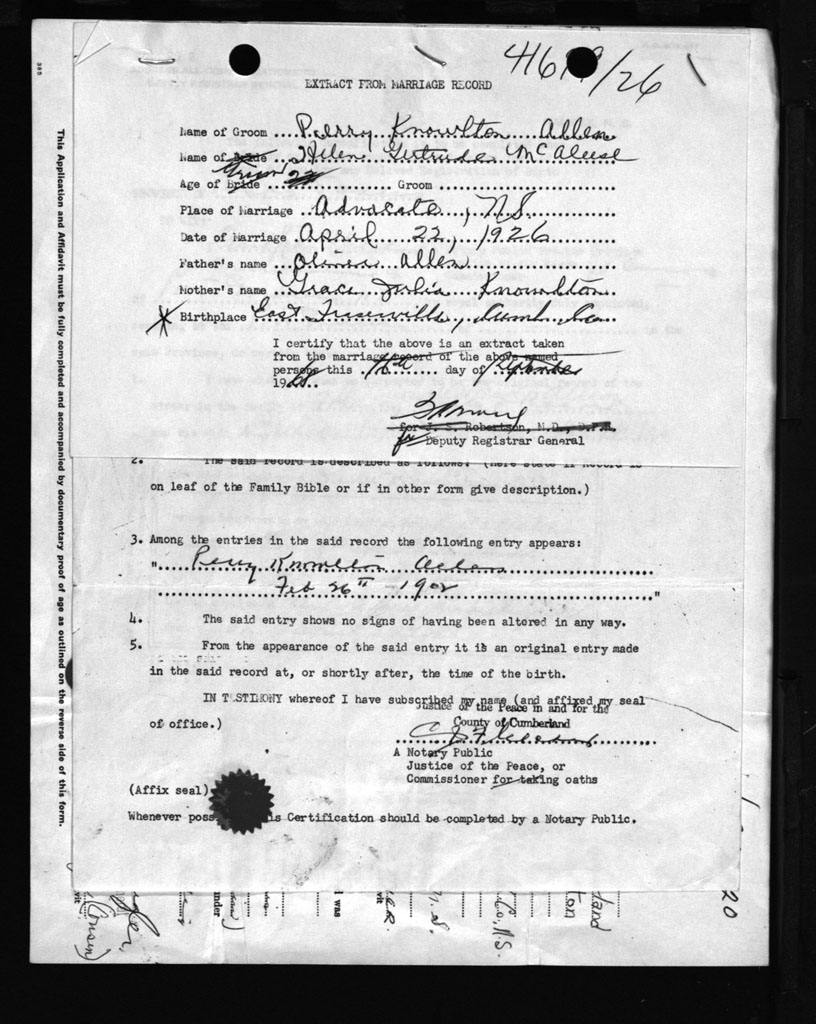 41619/26
EXTRACT FROM MARRIAGE RECORD
Name of Groom ....Perry Knowlton Allen
Name of Bride ...Helen Gertrude McAleese
Age of Bride ................ Groom ............................
Place of Marriage ..Advocate, N.S.
Date of Marriage .April 22, 1926
Father's name ... Allen
Mother's name .Grace Julia Knowlton
Birthplace East Fraserville, Cumb. Co.
I certify that the above is an extract taken
from the marriage record of the above named
persons this .16th..... day of
19
for J. S. Robertson, M.D., D.P.H.
for Deputy Registrar General
2. The said record is described as follows: (here state if Record is
on leaf of the Family Bible or if in other form give description.)
3. Among the entries in the said record the following entry appears:
"..... Perry Knowlton Allen ..........
.............. Feb 26th 1902 .............."
4. The said entry shows no signs of having been altered in any way.
5. From the appearance of the said entry it is an original entry made
in the said record at, or shortly after, the time of the birth.
IN TESTIMONY whereof I have subscribed my name (and affixed my seal
of office.)
Justice of the Peace in and for the
County of Cumberland
A Notary Public
Justice of the Peace, or
Commissioner for taking oaths
(Affix seal)
Whenever poss is Certification should be completed by a Notary Public.
This Application and Affidavit must be fully completed and accompanied by documentary proof of age as outlined on the reverse side of this form.
I was
under
vit
N.S.
Co, N.S.
ton
land
20
(Cousin)